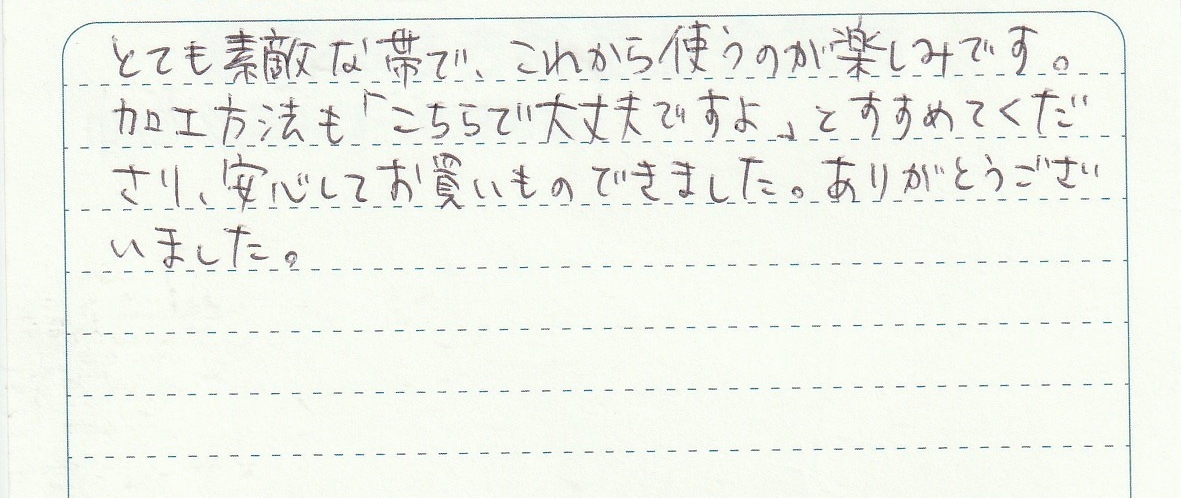 とても素敵な帯で、これから使うのが楽しみです。
加工方法も「こちらで大丈夫ですよ」とすすめてくだ
さり、安心してお買いものできました。ありがとうござい
いました。